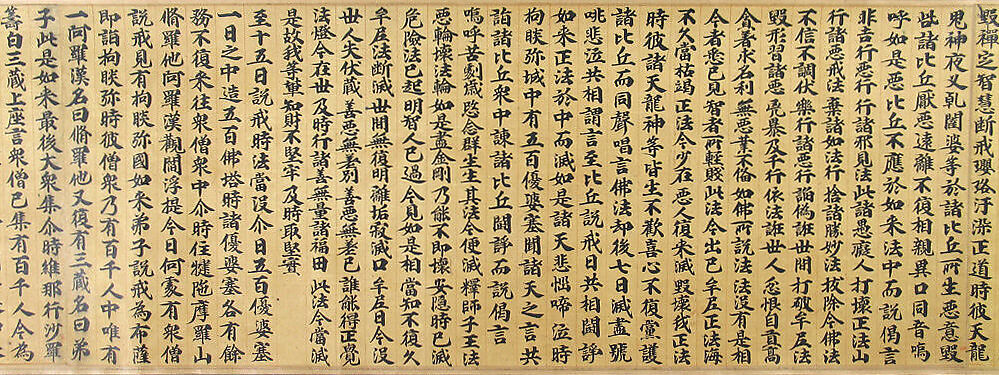 毀禪之智慧斷戒瓔珞汙染正道時彼天龍
鬼神夜叉乹闥婆等於諸比丘所生惡毀
呰諸比丘厭惡遠離不復相親異口同音嗚
呼如是惡比丘不應於如来法中而說偈言
非吉行惡行行諸邪見法此諸愚癡人打壞正法山
行諸惡戒法棄諸如法行捨諸勝妙法拔除今佛法
不信不調伏樂行諸惡行諂偽誑世間打破牟尼法
毀形習諸惡兇暴及千行依法誑世人忿恨自貢高
貪著求名利無惡業不備如佛所說法法沒有是相
今者悉已見智者所輕賤此法今出已牟尼正法海
不久當枯竭正法今少在惡人復来滅毀壞我正法
時彼諸天龍神等皆生不歡喜心不復黨護
諸比丘而同聲唱言佛法却後七日滅盡號
咷悲泣共相謂言至比丘說戒日共相鬪諍
如来正法於中而滅如是諸天悲惱啼泣時
拘睒弥城中有五百優婆塞聞諸天之言共
詣諸比丘衆中諫諸比丘鬪諍而說偈言
嗚呼苦劇歲愍念群生生其法今便滅釋師子王法
惡輪壞法輪如是盡金剛乃能不即壞安隱時已滅
危險法已起明智人已過今見如是相當知不復久
牟尼法斷滅世間無復明離垢寂滅口牟尼日今沒
世人失伏藏善惡無差別善惡無差已誰能得正覺
法燈今在世及時行諸善無量諸福田此法今當滅
是故我等輩知財不堅牢及時取堅實
至十五日說戒時法當沒尒日五百優婆塞
一日之中造五百佛塔時諸優婆塞各有餘
務不復来往衆僧中尒時住揵陁摩羅山
脩羅他阿羅漢觀閻浮提今日何處有衆僧
說戒見有拘睒弥國如来弟子說戒為布薩
即詣拘睒弥時彼僧衆乃有百千人中唯有
一阿羅漢名曰脩羅他又復有三藏名曰弟
子此是如来最後大衆集尒時維那行沙羅
籌白三藏上座言衆僧已集有百千人今為